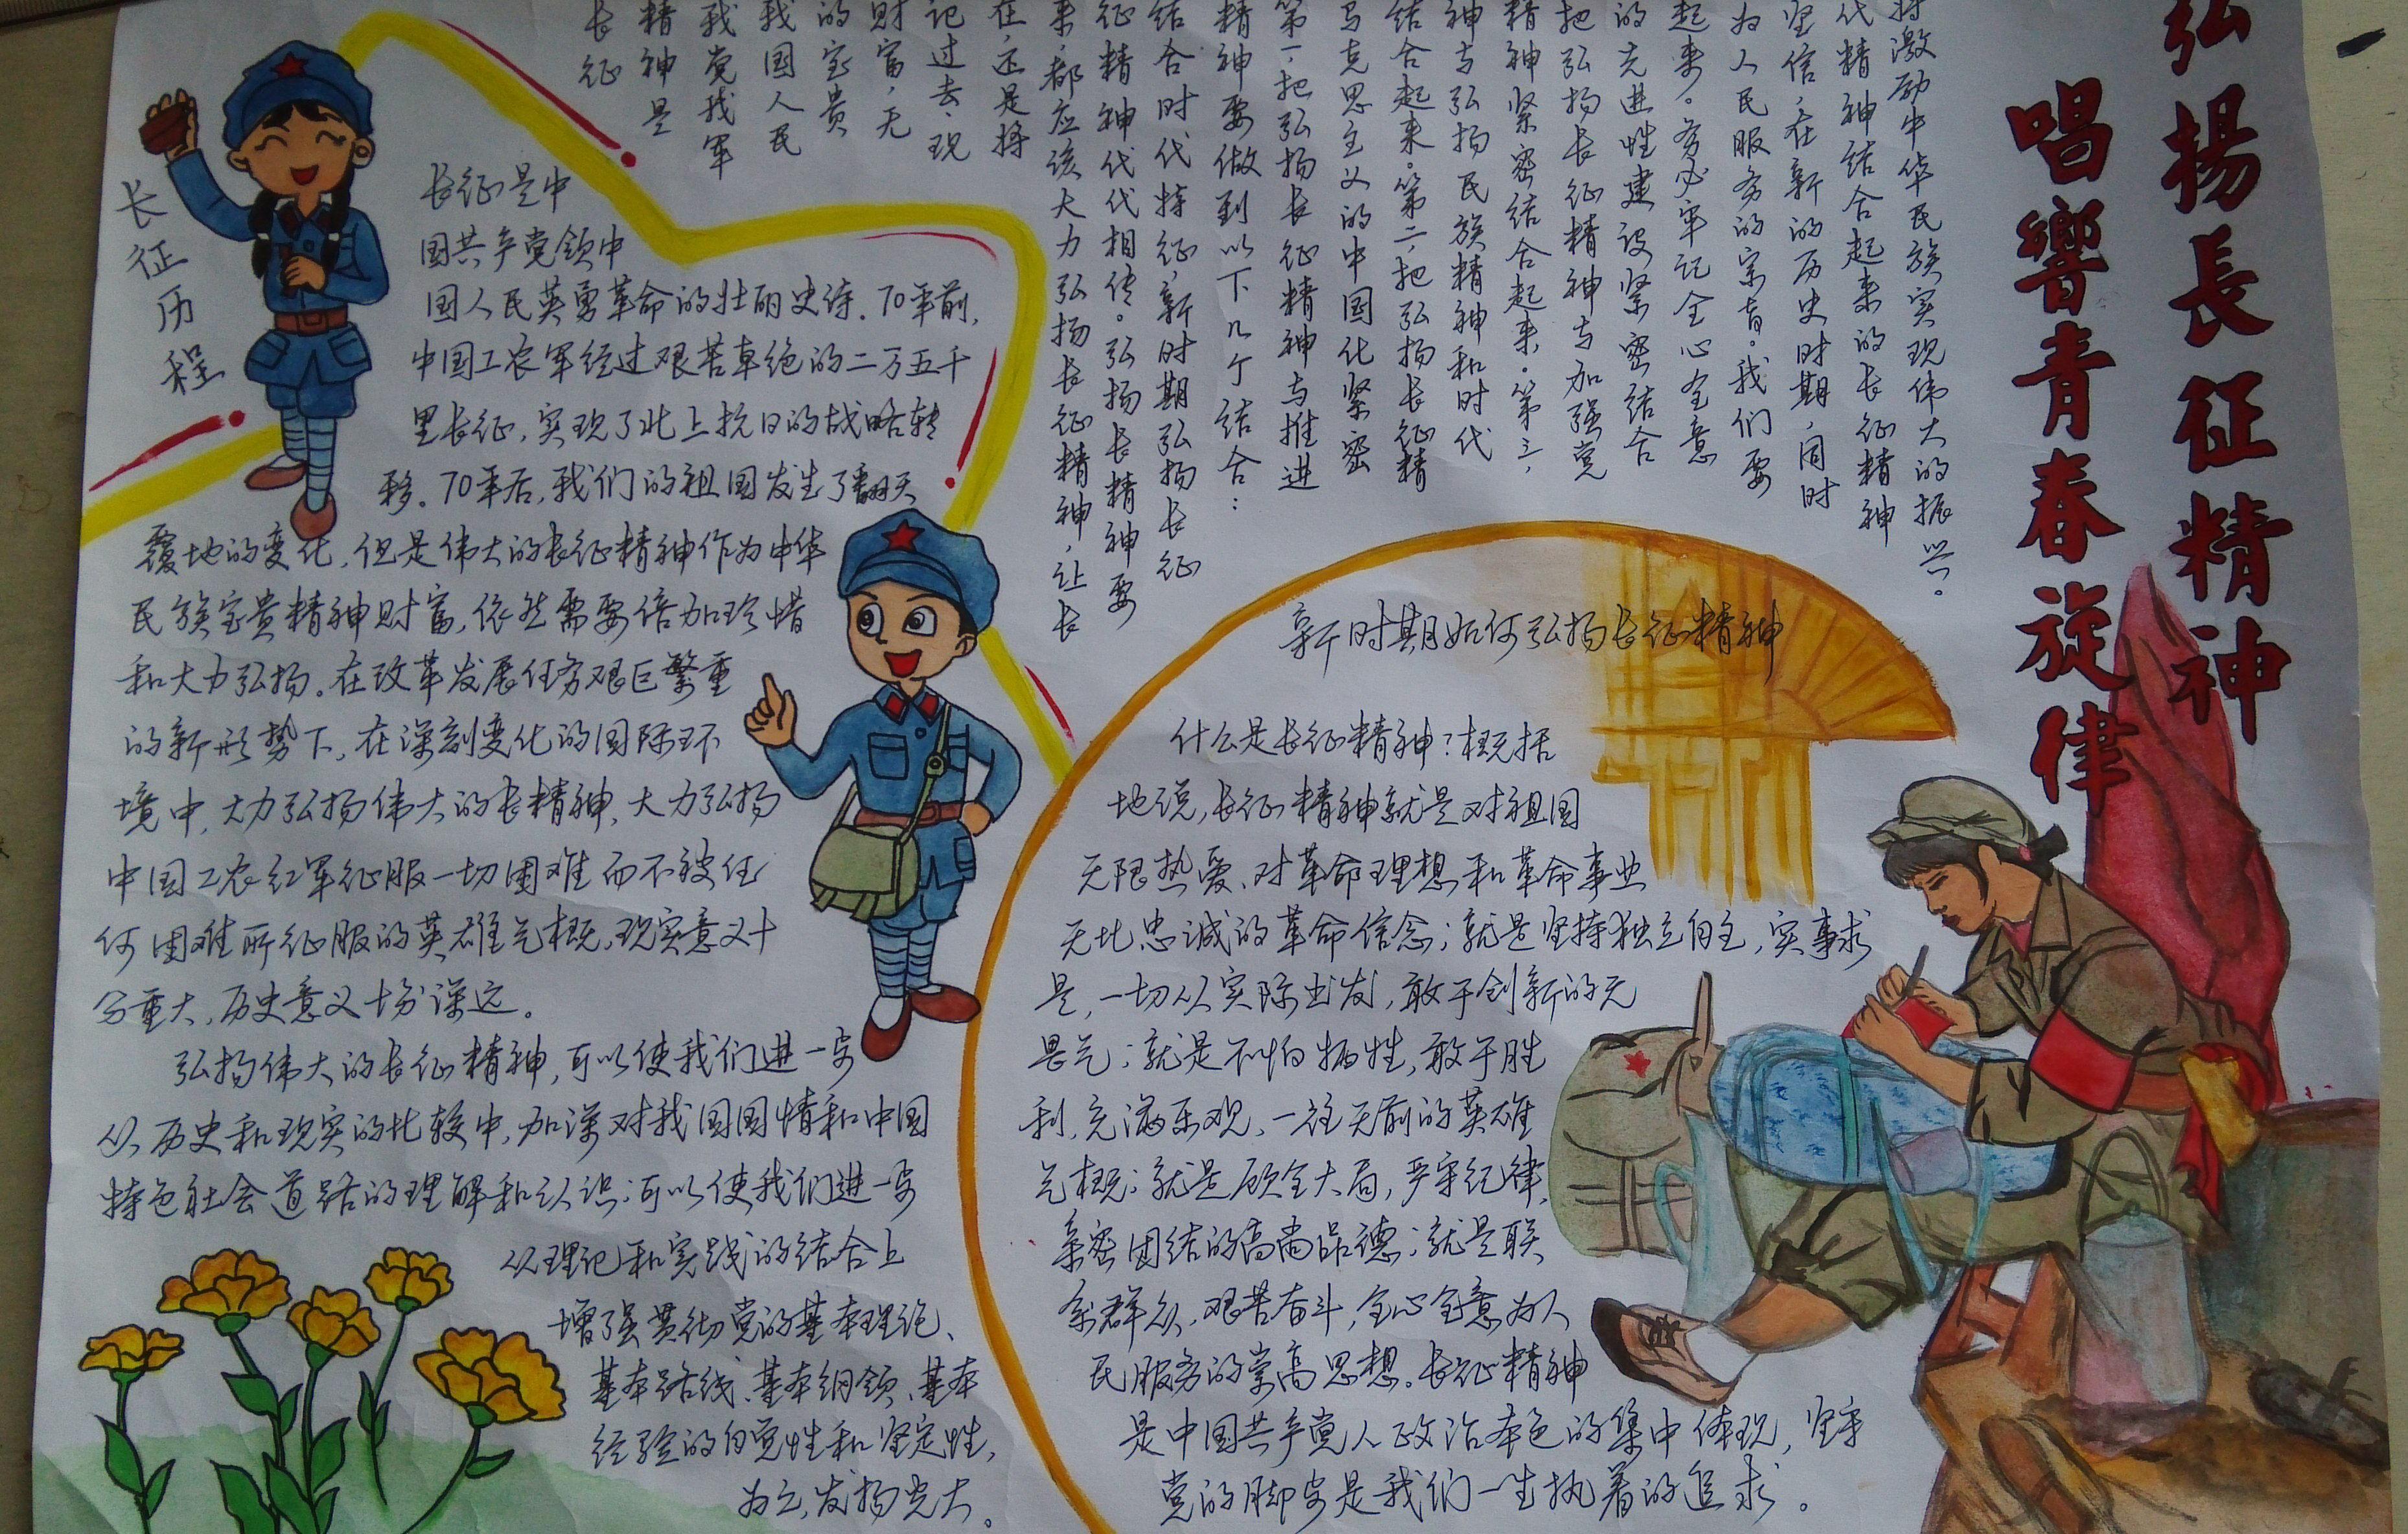 弘揚長征精神
唱響青春旋律
长征历程
长征是中
国共产党领中
国人民英勇革命的壮丽史诗.70年前,
中国工农军经过艰苦卓绝的二万五千
里长征,实现了北上抗日的战略转
移.70年后,我们的祖国发生了翻天
覆地的变化,但是伟大的长征精神作为中华
民族宝贵精神财富,依然需要倍加珍惜
和大力弘扬.在改革发展任务艰巨繁重
的新形势下,在深刻变化的国际环
境中,大力弘扬伟大的长精神、大力弘扬
中国工农红军征服一切困难而不被任
何困难所征服的英雄气概,现实意义十
分重大,历史意义十分深远。
弘扬伟大的长征精神,可以使我们进一步
从历史和现实的比较中,加深对我国国情和中国
特色社会道路的理解和认识;可以使我们进一步
从理论和实践的结合上
增强贯彻党的基本理论、
基本路线、基本纲领、基本
经验的自觉性和坚定性,
为之,发扬光大。
长征
精神是
我党我军
我国人民
的宝贵
财富,无
记过去、现
在,还是将
来,都应该大力弘扬长征精神,让长
征精神代代相传。弘扬长精神要
结合时代特征,新时期弘扬长征
精神要做到以下几个结合:
第一,把弘扬长征精神与推进
马克思主义的中国化紧密
结合起来.第二,把弘扬长征精
神与弘扬民族精神和时代
精神紧密结合起来.第三,
把弘扬长征精神与加强党
的先进性建设紧密结合
起来。务必牢记全心全意
为人民服务的宗旨。我们要
坚信,在新的历史时期,同时
代精神结合起来的长征精神
将激励中华民族实现伟大的振兴。
新时期如何弘扬长征精神
什么是长征精神?概括
地说,长征精神就是对祖国
无限热爱、对革命理想和革命事业
无比忠诚的革命信念;就是坚持独立自主,实事求
是,一切从实际出发,敢于创新的无
畏气;就是不怕牺牲,敢于胜
利,充满乐观,一往无前的英雄
气概;就是顾全大局,严守纪律,
亲密团结的高尚品德;就是联
系群众,艰苦奋斗,全心全意为人
民服务的崇高思想。长征精神
是中国共产党人政治本色的集中体现,坚守
党的脚步是我们一生执着的追求。